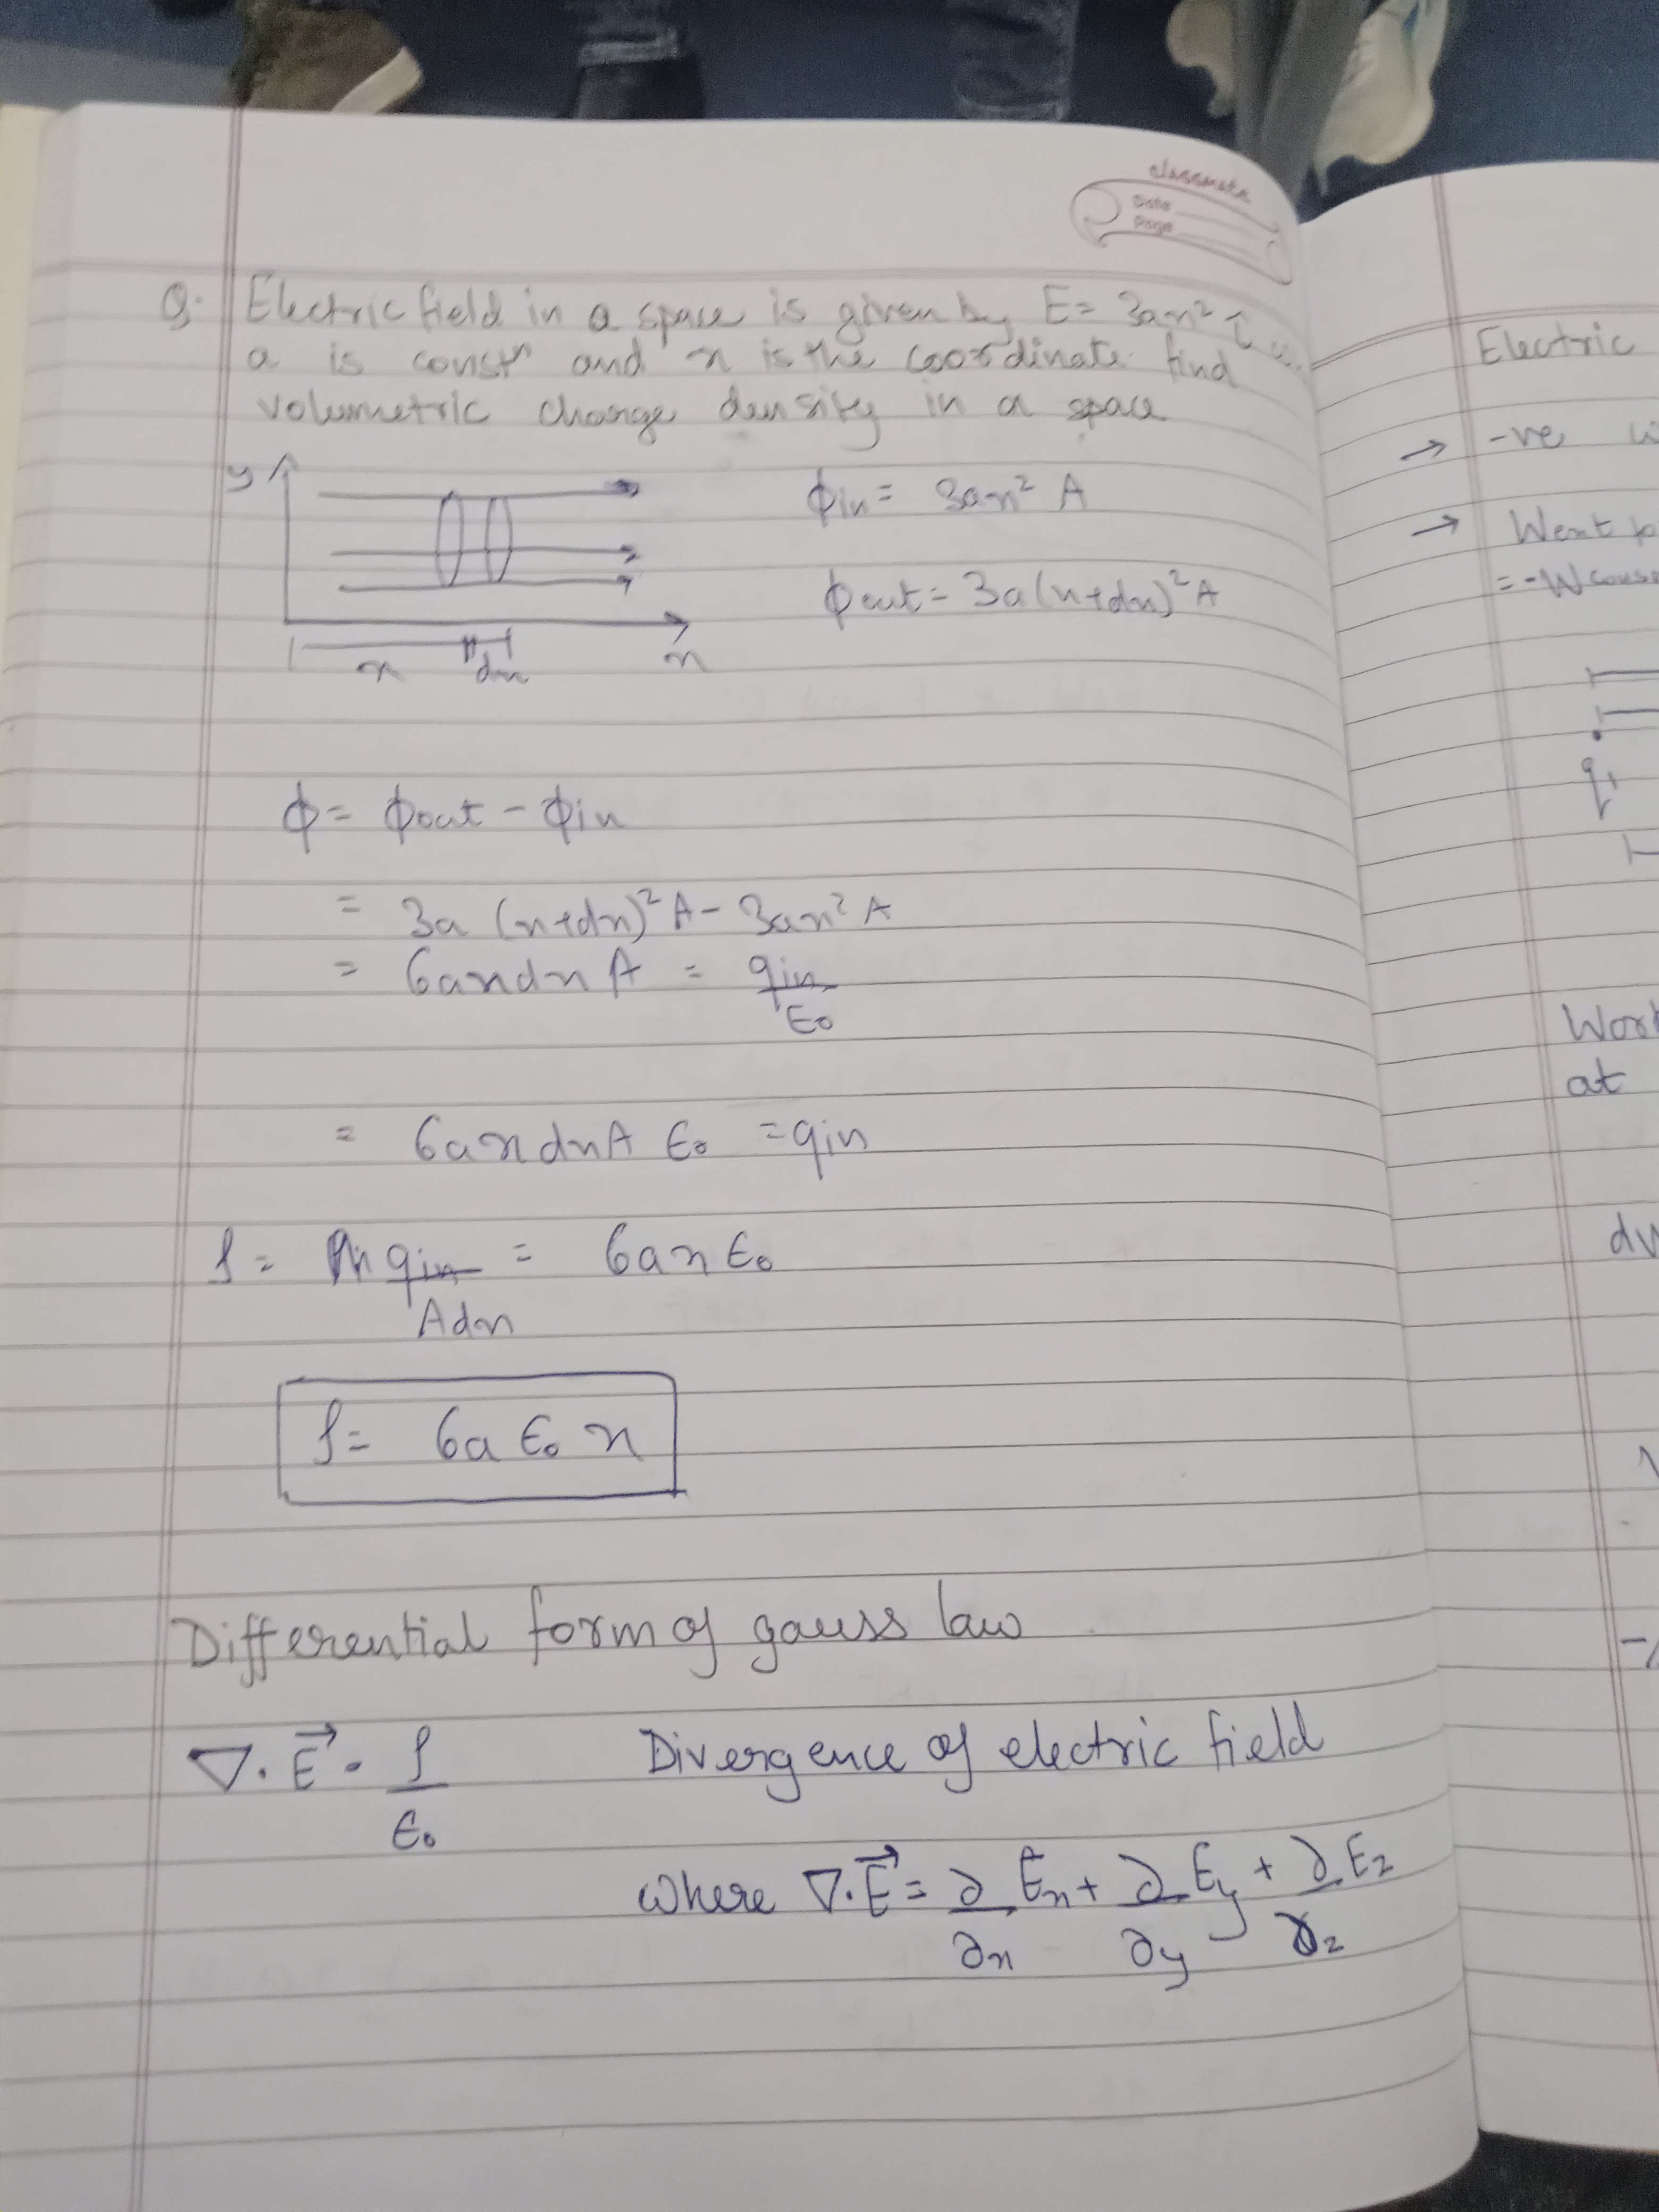 classmate
Date
Page
Q. Electric field in a space is given by E = 3ax² î
a is constⁿ and x is the coordinate find
volumetric charge density in a space
y
x
dx
x
ϕin = 3ax² A
ϕout = 3a(x+dx)² A
ϕ = ϕout - ϕin
= 3a (x+dx)² A - 3ax² A
= 6axdx A = qin/ε₀
= 6axdxA ε₀ = qin
ρ = qin/Adx = 6axε₀
ρ = 6a ε₀ x
Differential form of gauss law
∇·E⃗ = ρ/ε₀ Divergence of electric field
where ∇·E⃗ = ∂/∂x Ex + ∂/∂y Ey + ∂/∂z Ez
Electric
→ -ve
→ Went
= -W
q₁
Work
at